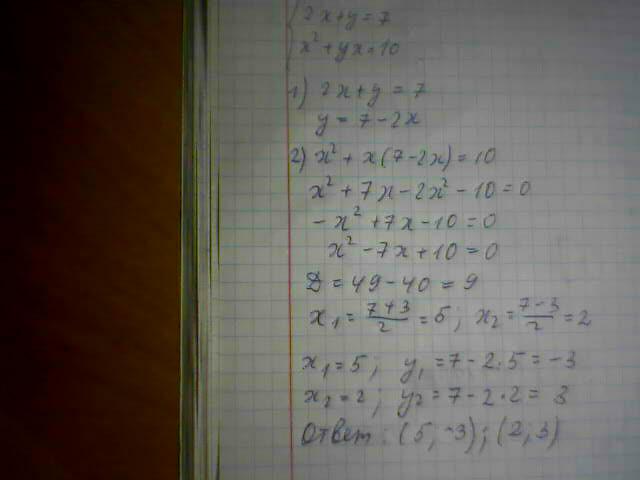 2x+y=7
x²+yx=10
1) 2x+y=7
y=7-2x
2) x²+x(7-2x)=10
x²+7x-2x²-10=0
-x²+7x-10=0
x²-7x+10=0
D=49-40=9
x₁=(7+3)/2=5; x₂=(7-3)/2=2
x₁=5; y₁=7-2·5=-3
x₂=2; y₂=7-2·2=3
Ответ: (5;-3); (2;3)